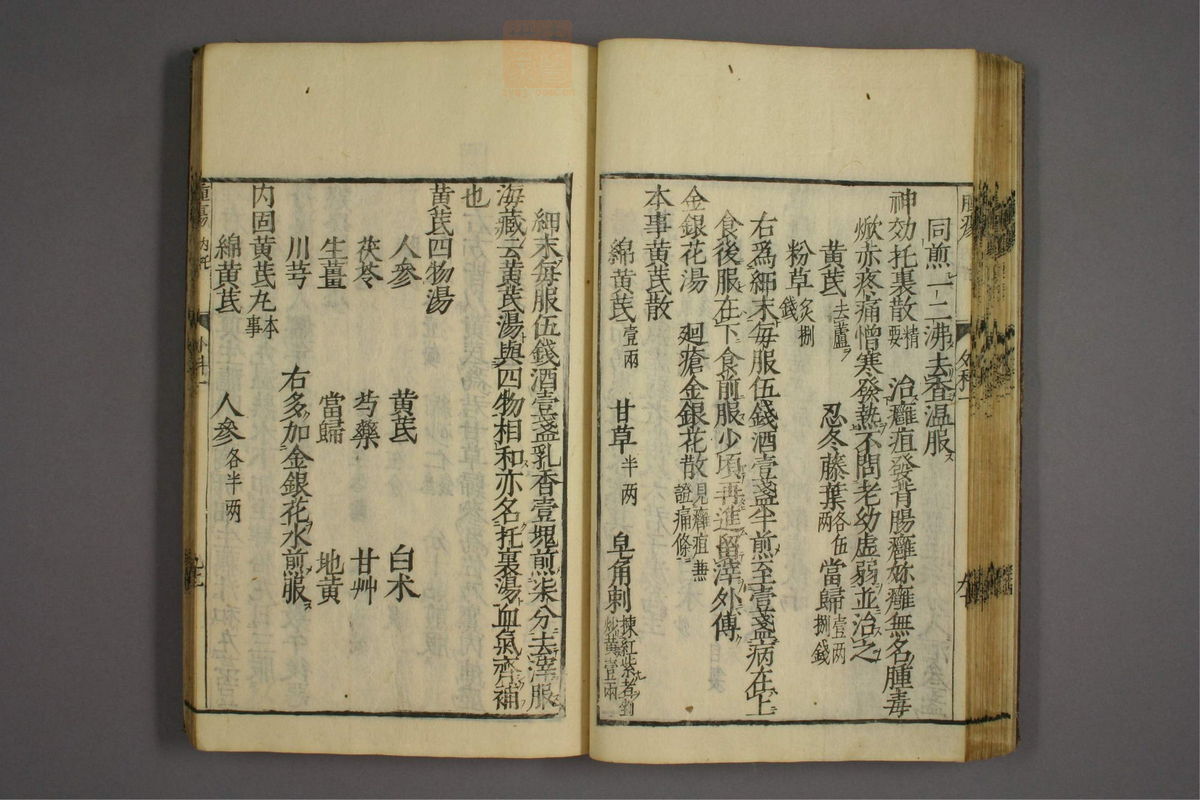 同煎一二沸去查温服
神効托裏散精要 治癰疽發背腸癰妳癰無名腫毒
焮赤疼痛憎寒發熱不問老幼虛弱並治之
黄芪去蘆 忍冬藤葉各伍两 當歸壹两捌錢
粉草炙捌錢
右爲細末每服伍錢酒壹盞半煎至壹盞病在上
食後服在下食前服少頃再進留滓外傅
金銀花湯 廻瘡金銀花散見癰疽無證痛條
本事黄芪散
綿黄芪壹兩 甘草半两 皂角刺揀紅紫者剉炒黄壹兩
細末每服伍錢酒壹盞乳香壹塊煎柒分去滓服
海藏云黄芪湯與四物相和亦名托裏湯血氣齊補
也
黄芪四物湯
人參 黄芪 白术
茯苓 芍藥 甘艸
生薑 當歸 地黄
川芎 右多加金銀花水煎服
内固黄芪丸本事
綿黄芪 人參各半两